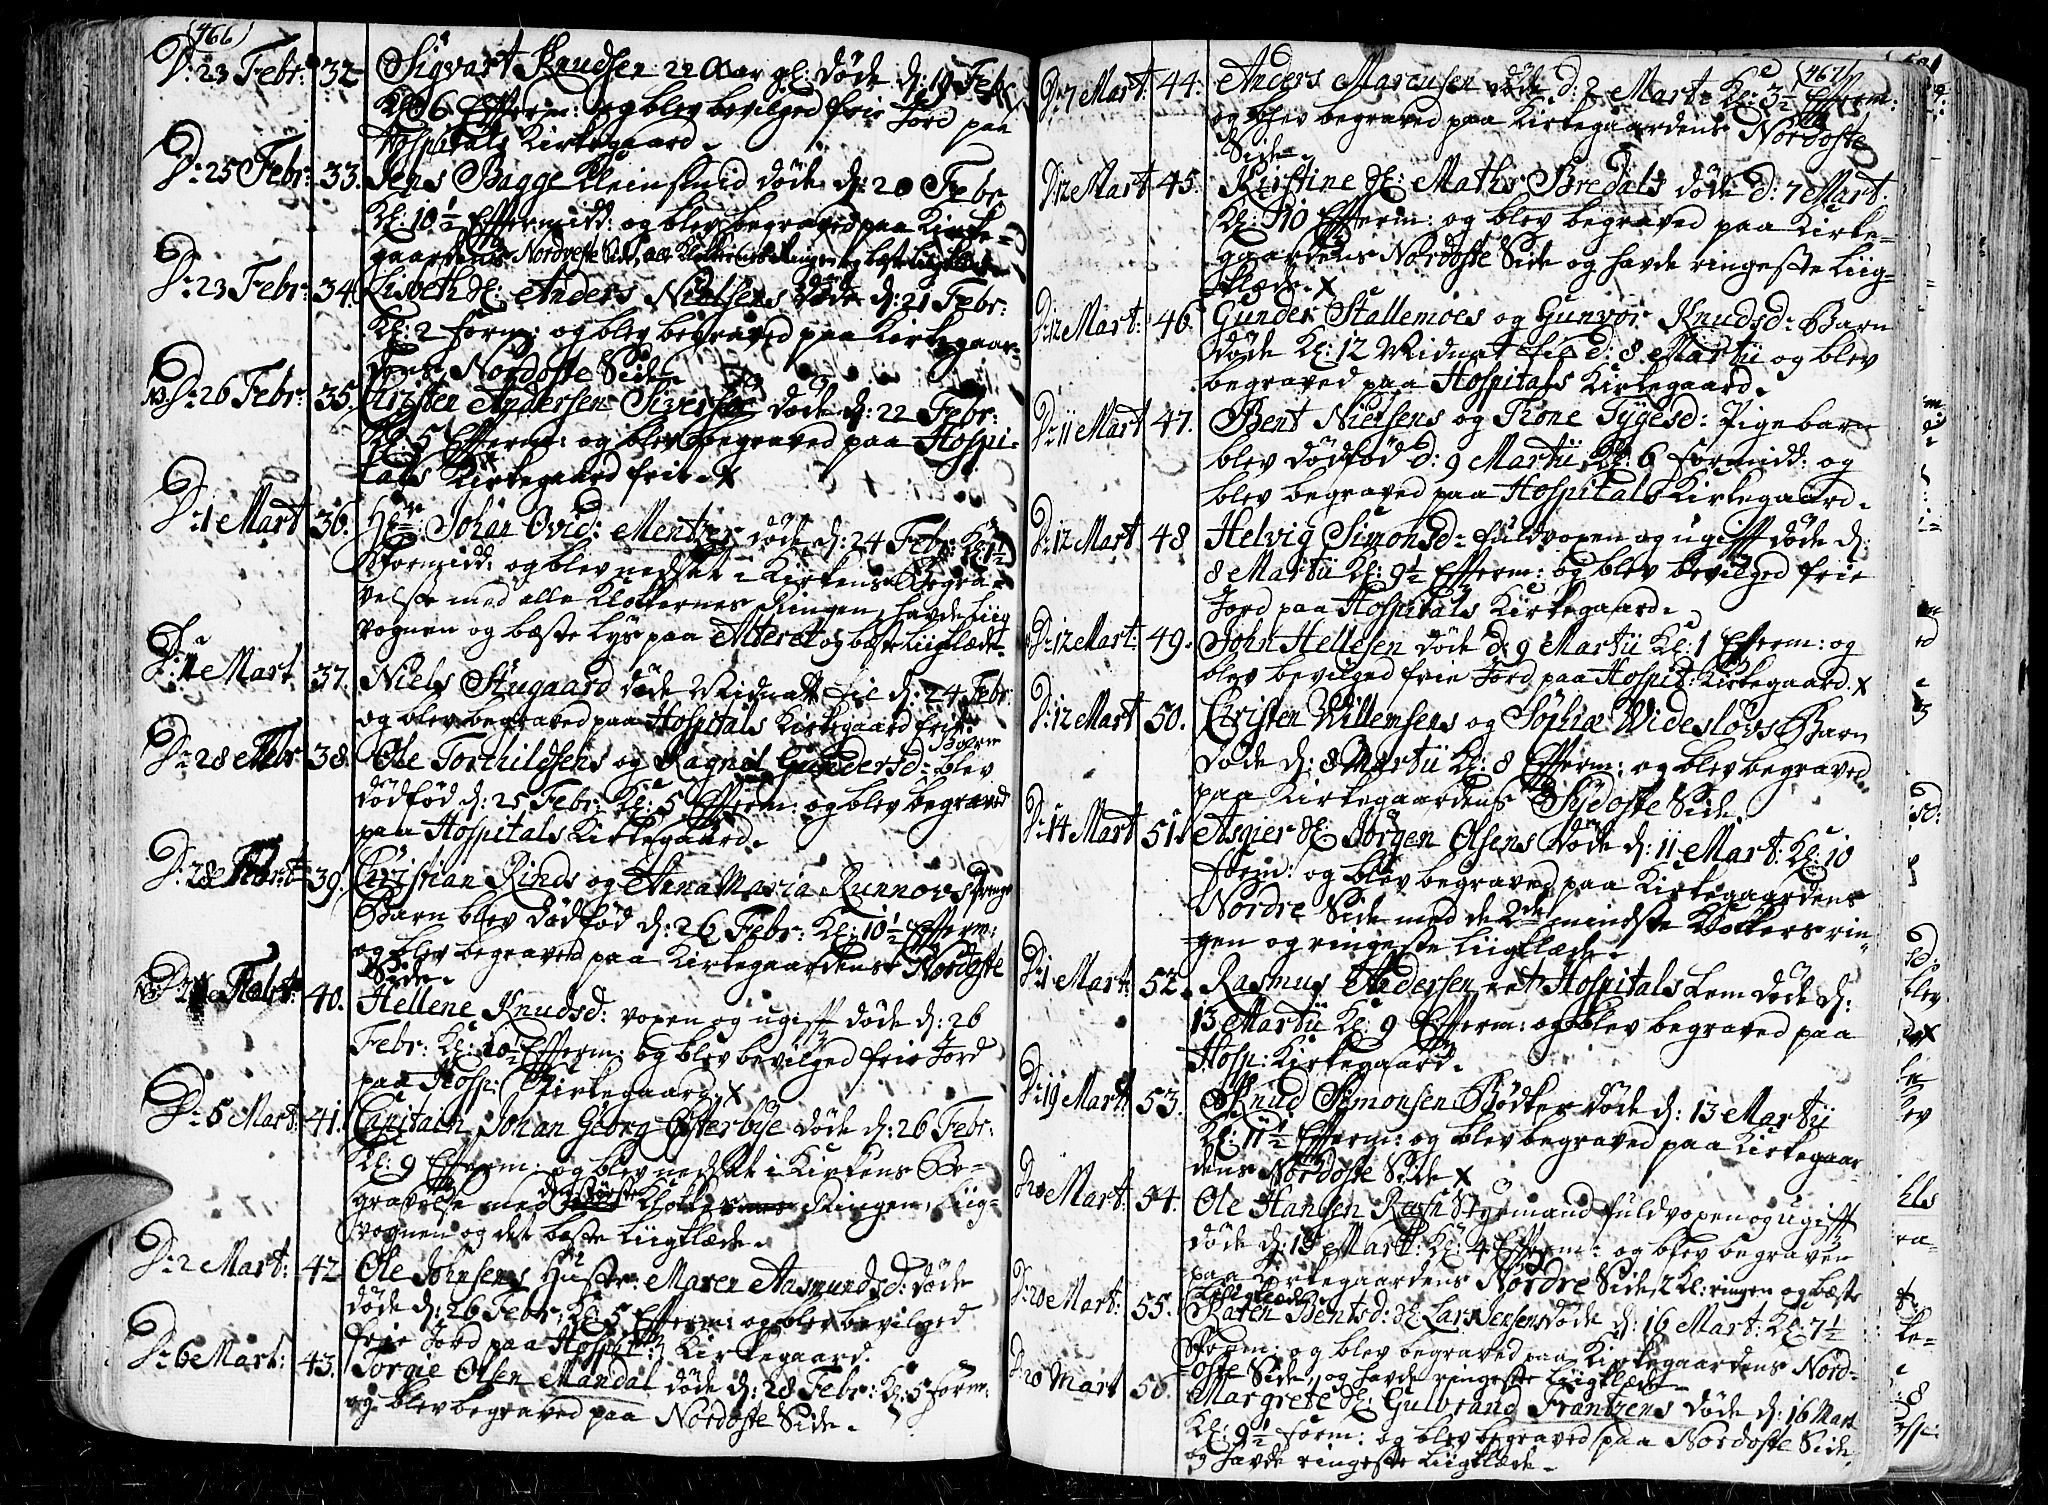 (466)
D: 23 Febr: 32. Sigvart Knudsen 22 Aar gl: døde d: 19 Febr
Kl: 6 Efterm: og blev bevilged frie Jord paa
Hospitals Kirkegaard.
D: 25 Febr: 33. Jens Bagge Kleinsmid døde d: 20 Febr
Kl: 10½ Eftermidd: og blev begraved paa Kirke-
gaardens Nordoste Side, alle Klokkernes Ringen og beste Liigklæde
D: 23 Febr: 34. Lisbeth Sl: Anders Nielsens døde d: 21 Febr:
Kl: 2 form: og blev begraved paa Kirkegaar-
dens Nordoste Side
D: 26 Febr: 35. Christen Andersen Siversen døde d: 22 Febr:
Kl: 5 Efterm: og blev begraved paa Hospi-
tals Kirkegaard frit. x
D: 1 Mart 36. Hr: Johan Ovid: Mentzer døde d: 24 Febr: Kl: 1½
Formidd: og blev nedsat i Kirkens Begra-
velse med alle Klokkernes Ringen, havde Liig
vognen og bæste Lys paa Alteret og bæste Liigklæde.
D: 1 Mart 37. Niels Stugaard døde Midnatt til d: 24 Febr
og blev begraved paa Hospitals Kirkegaard frit
D: 28 Febr 38. Ole Torchildsens og Ragnil Gundersd: Barn blev
dødfød d: 25 Febr: Kl: 5 Efterm: og blev begraved
paa Hospitals Kirkegaard.
D: 28 Febr 39. Christian Rinds og Anna Maria Runnovs Drenge
Barn blev dødfød d: 26 Febr: Kl: 10½ Efterm:
og blev begraved paa Kirkegaardens Nordoste
Side.
40. Hellene Knudsd: voxen og ugift døde d: 26
Febr: Kl: 10½ Efterm: og blev bevilged frie Jord
paa Hosp: Kirkegaard x
D: 5 Mart: 41. Capitain Johan Georg Osterbye døde d: 26 Febr:
Kl: 9 Efterm: og blev nedsat i Kirkens Be-
gravelse med de største Klokkers Ringen, Liig-
vognen og det bæste Liigklæde.
D: 2 Mart: 42 Ole Johnsens Hustr: Maren Aasmundsd: døde
døde d: 26 Febr: Kl: 5 Efterm: og blev bevilged
frie Jord paa Hospit: Kirkegaard.
D: 6 Mart: 43. Torgie Olsen Mandal døde d: 28 Febr: Kl: 5 form:
og blev begraved paa Nordoste Side.
(467)
D: 7 Mart: 44. Anders Marcusen døde d: 2 Mart: Kl: 3½ Efterm:
og blev begraved paa Kirkegaardens Nordoste
Side.
D: 12 Mart 45. Kirstine Sl: Mathis Bredals døde d: 7 Mart.
Kl: 10 Efterm: og blev begraved paa Kirke-
gaardens Nordoste Side og havde ringeste Liig-
klæde. x
D: 12 Mart: 46. Gunder Stallemoes og Gunvor Knudsd: Barn
døde Kl: 12 Midnat til d: 8 Martii og blev
begraved paa Hospitals Kirkegaard.
D: 11 Mart 47. Bent Nielsens og Trone Tygesd: Pigebarn
blev dødfød d: 9 Martii, Kl: 6 formidd: og
blev begraved paa Hospitals Kirkegaard.
D: 12 Mart 48 Helvig Simonsd: fuldvoxen og ugift døde d:
8 Martii Kl: 9½ Efterm: og blev bevilged frie
Jord paa Hospitals Kirkegaard.
D: 12 Mart: 49. John Hellesen døde d: 9 Martii Kl: 1 Efterm: og
blev bevilged frie Jord paa Hospit: Kirkegaard. x
D: 12 Mart 50. Christen Willemsens og Sophiæ Videsløvs Barn
døde d: 8 Martii Kl: 8 Efterm: og blev begraved
paa Kirkegaardens Sydoste Side.
D: 14 Mart 51. Asgier Sl: Jørgen Olsens døde d: 11 Mart: Kl: 10
Form: og blev begraved paa Kirkegaardens
Nordre Side med de 2de mindste Klokkers rin-
gen og ringeste Liigklæde.
Mart: 52. Rasmus Andersen et Hospitals Lem døde d:
13 Martii Kl: 9 Efterm: og blev begraved paa
Hosp: Kirkegaard.
D: 19 Mart: 53. Knud Simonsen Bødker døde d: 13 Martii
Kl: 11½ Efterm: og blev begraved paa Kirkegaar-
dens Nordoste Side x
D: 20 Mart: 54. Ole Hansen Rasn Styrmand fuldvoxen og ugift
døde d: 15 Mart: Kl: 4 Efterm: og blev begraven
paa Kirkegaardens Nordre Side, 2 Kl: ringen og bæste
Liigklæde.
D: 20 Mart: 55. Karen Bentsd: Sl: Lars Jensens døde d: 16 Mart: Kl 7½
Form: og blev begraved paa Kirkegaardens Nord-
oste Side, og havde ringeste Liigklæde
D: 20 Mart 56. Margrete Sl: Gulbrand Frantzens døde d: 16 Mart
Kl: 9½ form: og blev begraved paa Nordoste Side
og havde ringeste Liigklæde.